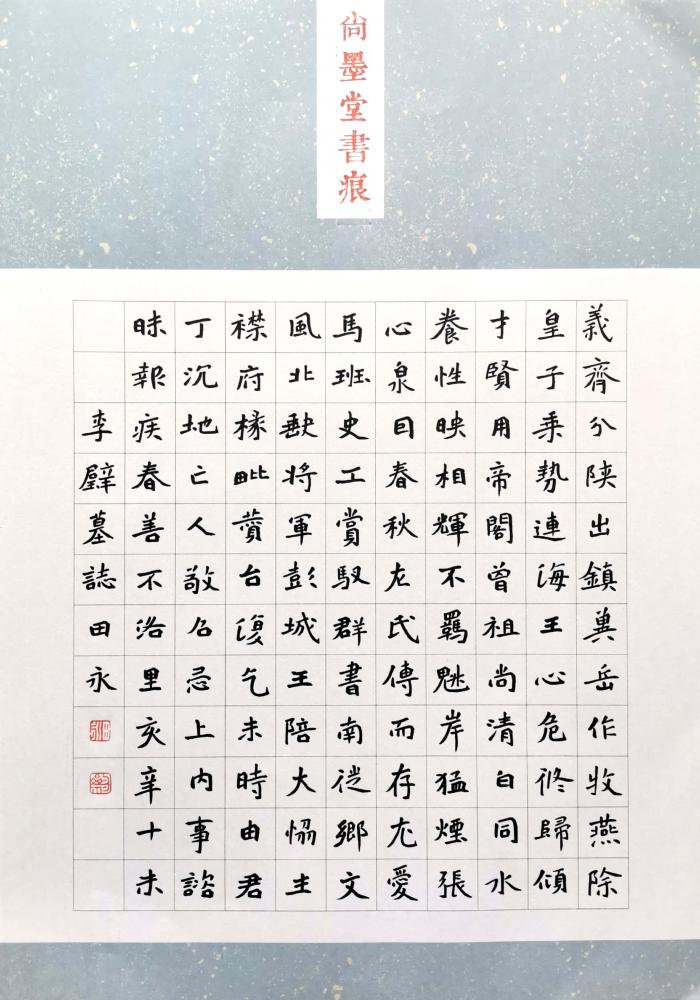 尚墨堂書痕
義齊分陝出鎮冀岳作牧燕除
皇子乘勢連海王心危脩歸傾
才賢用帝閣曾祖尚清白同水
養性映相輝不羈魁岸猛煙張
心泉目春秋左氏傳而存尤愛
馬班史工賞馭群書南從鄉文
風北缺將軍彭城王陪大恊主
襟府椽毗蕡台復乞未時由君
丁沉地亡人敬名忌上内事諮
昧報疾春善不洛里亥辛十未
李璧墓誌田永